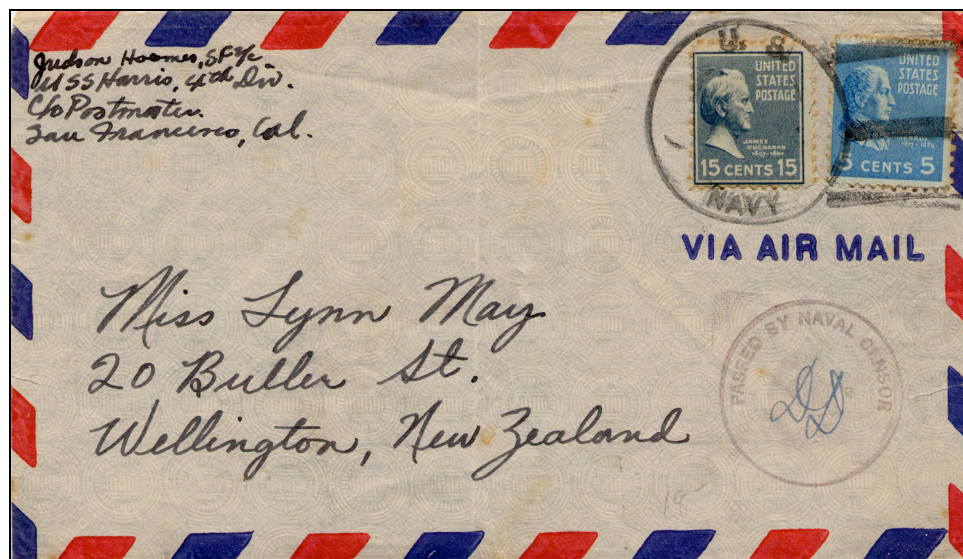 Judson Hoemes, SF 3/c
USS Harris, 4th Div.
C/o Postmaster
San Francisco, Cal.
U S
NAVY
UNITED
STATES
POSTAGE
JAMES
BUCHANAN
1857-1861
15 CENTS 15
UNITED
STATES
POSTAGE
5 CENTS 5
VIA AIR MAIL
Miss Lynn May
20 Buller St.
Wellington, New Zealand
PASSED BY NAVAL CENSOR
18